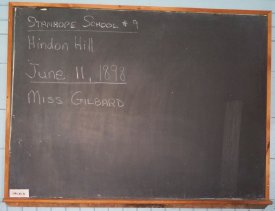 STANHOPE SCHOOL #9
Hindon Hill
June 11, 1898
MISS GILBARD